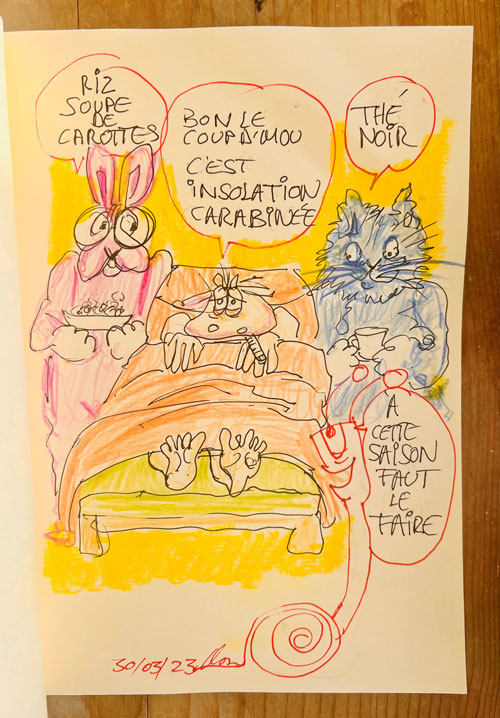 RIZ
SOUPE
DE
CAROTTES
BON LE
COUP D'MOU
C'EST
INSOLATION
CARABINÉE
THÉ
NOIR
A
CETTE
SAISON
FAUT
LE
FAIRE
30/03/23